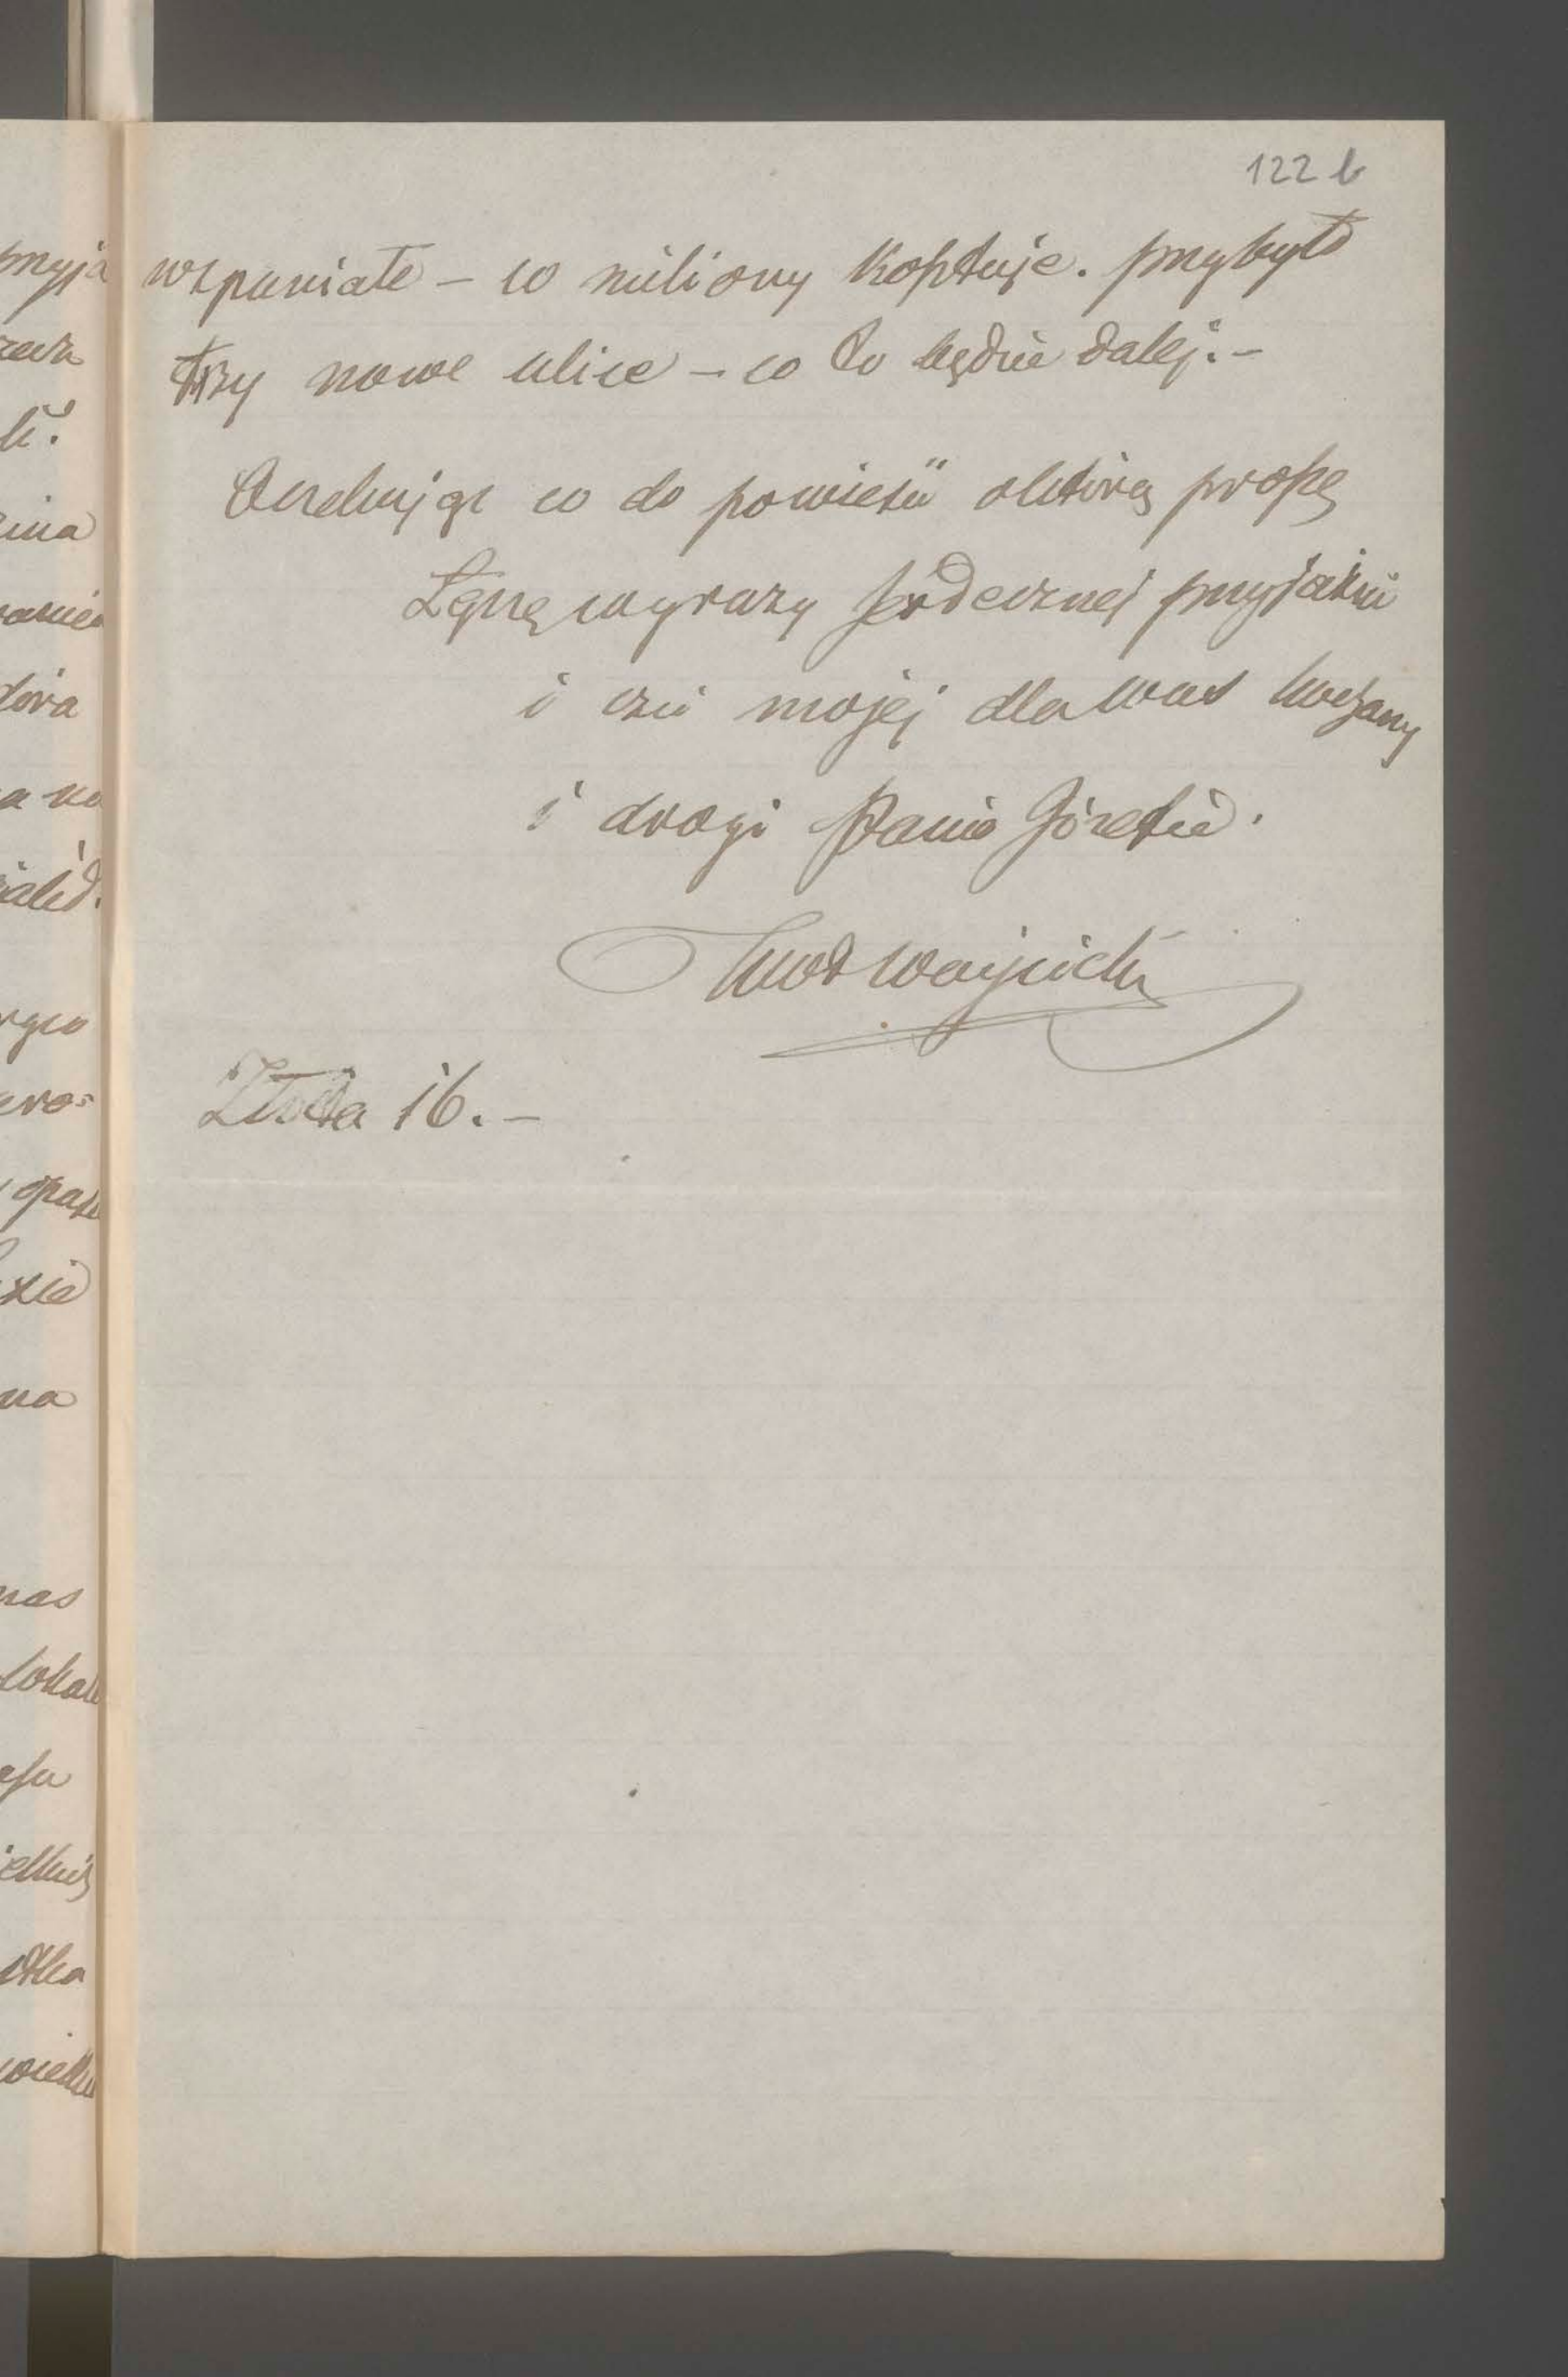 122 b
wspaniałe – co miliony kosztuje. przybyło
trzy nowe ulice – co to będzie dalej. –
Oczekując co do powieści o którą proszę
Łączę wyrazy serdecznej przyjaźni
i czci mojej dla was kochany
i drogi Panie Józefie.
KWł Wójcicki
Złota 16. –